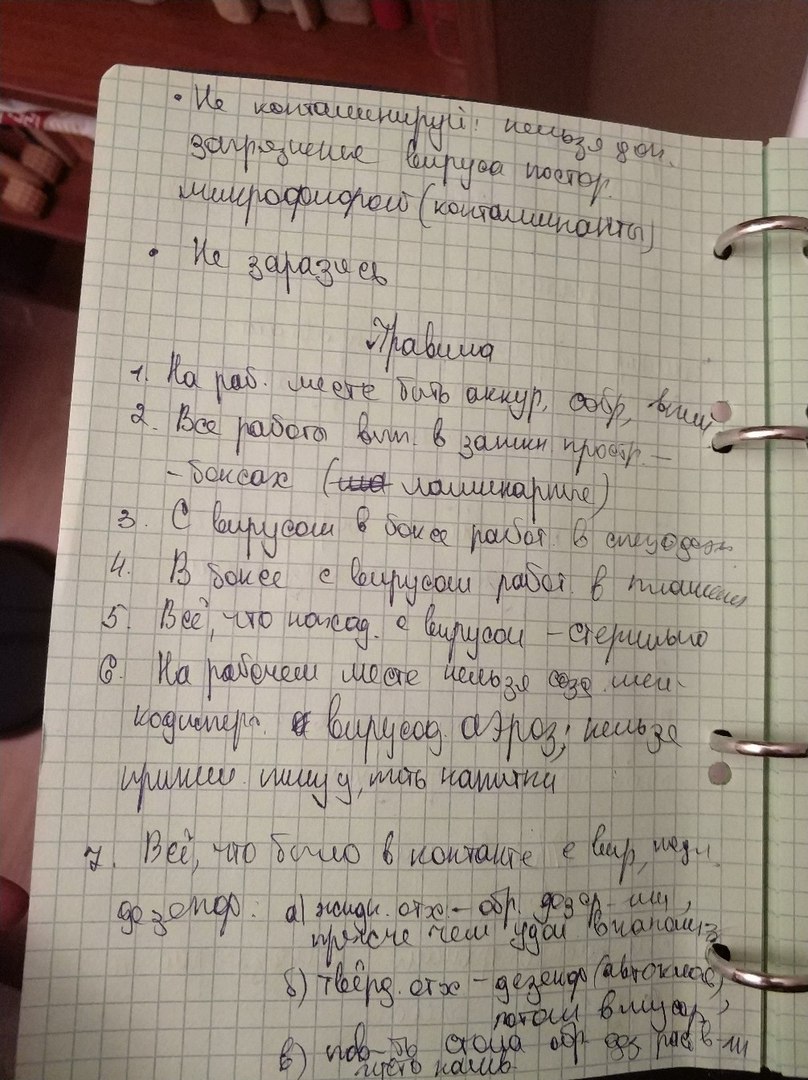 • Не контаминируй: нельзя доп.
загрязнение вируса постор.
микрофлорой (контаминанты)
• Не заразись
Правила
1. На раб. месте быть аккур, собр, вним
2. Все работы вып. в замкн простр. –
– боксах (ламинарные)
3. С вирусом в боксе работ. в спецодежд
4. В боксе с вирусом работ. в
5. Всё, что наход. с вирусом – стерильно
6. На рабочем месте нельзя созд. мел-
кодисперс. вирусод. аэроз; нельзя
приним. пищу, пить напитки
7. Всё, что было в контакте с вир, подл.
дезенф: а) жидк. отх – обр.
прежде чем удал в канализ
б) твёрд. отх – дезенф (автоклав),
потом в мусор,
в) пов-ть стола обр дез раств-ми